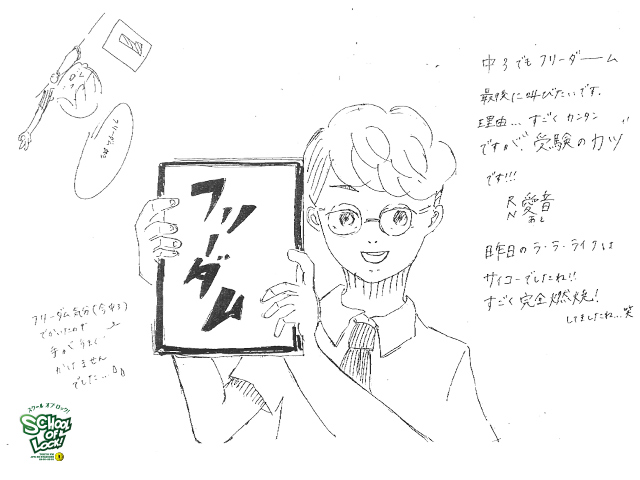 中3でもフリーダーーム
最後に叫びたいです。
理由… すごくカンタン
ですが、受験のカツ
です!!!
RN 愛音
あと
昨日のラ・ラ・ライブは
サイコーでしたね!!
すごく完全燃焼!
してましたね…笑
フリーダム
フリーダム気分(ちゅう)
でかいたので
手がうまく
かけません
でした…
スクール オブ ロック!
SCHOOL
OF
LOCK!